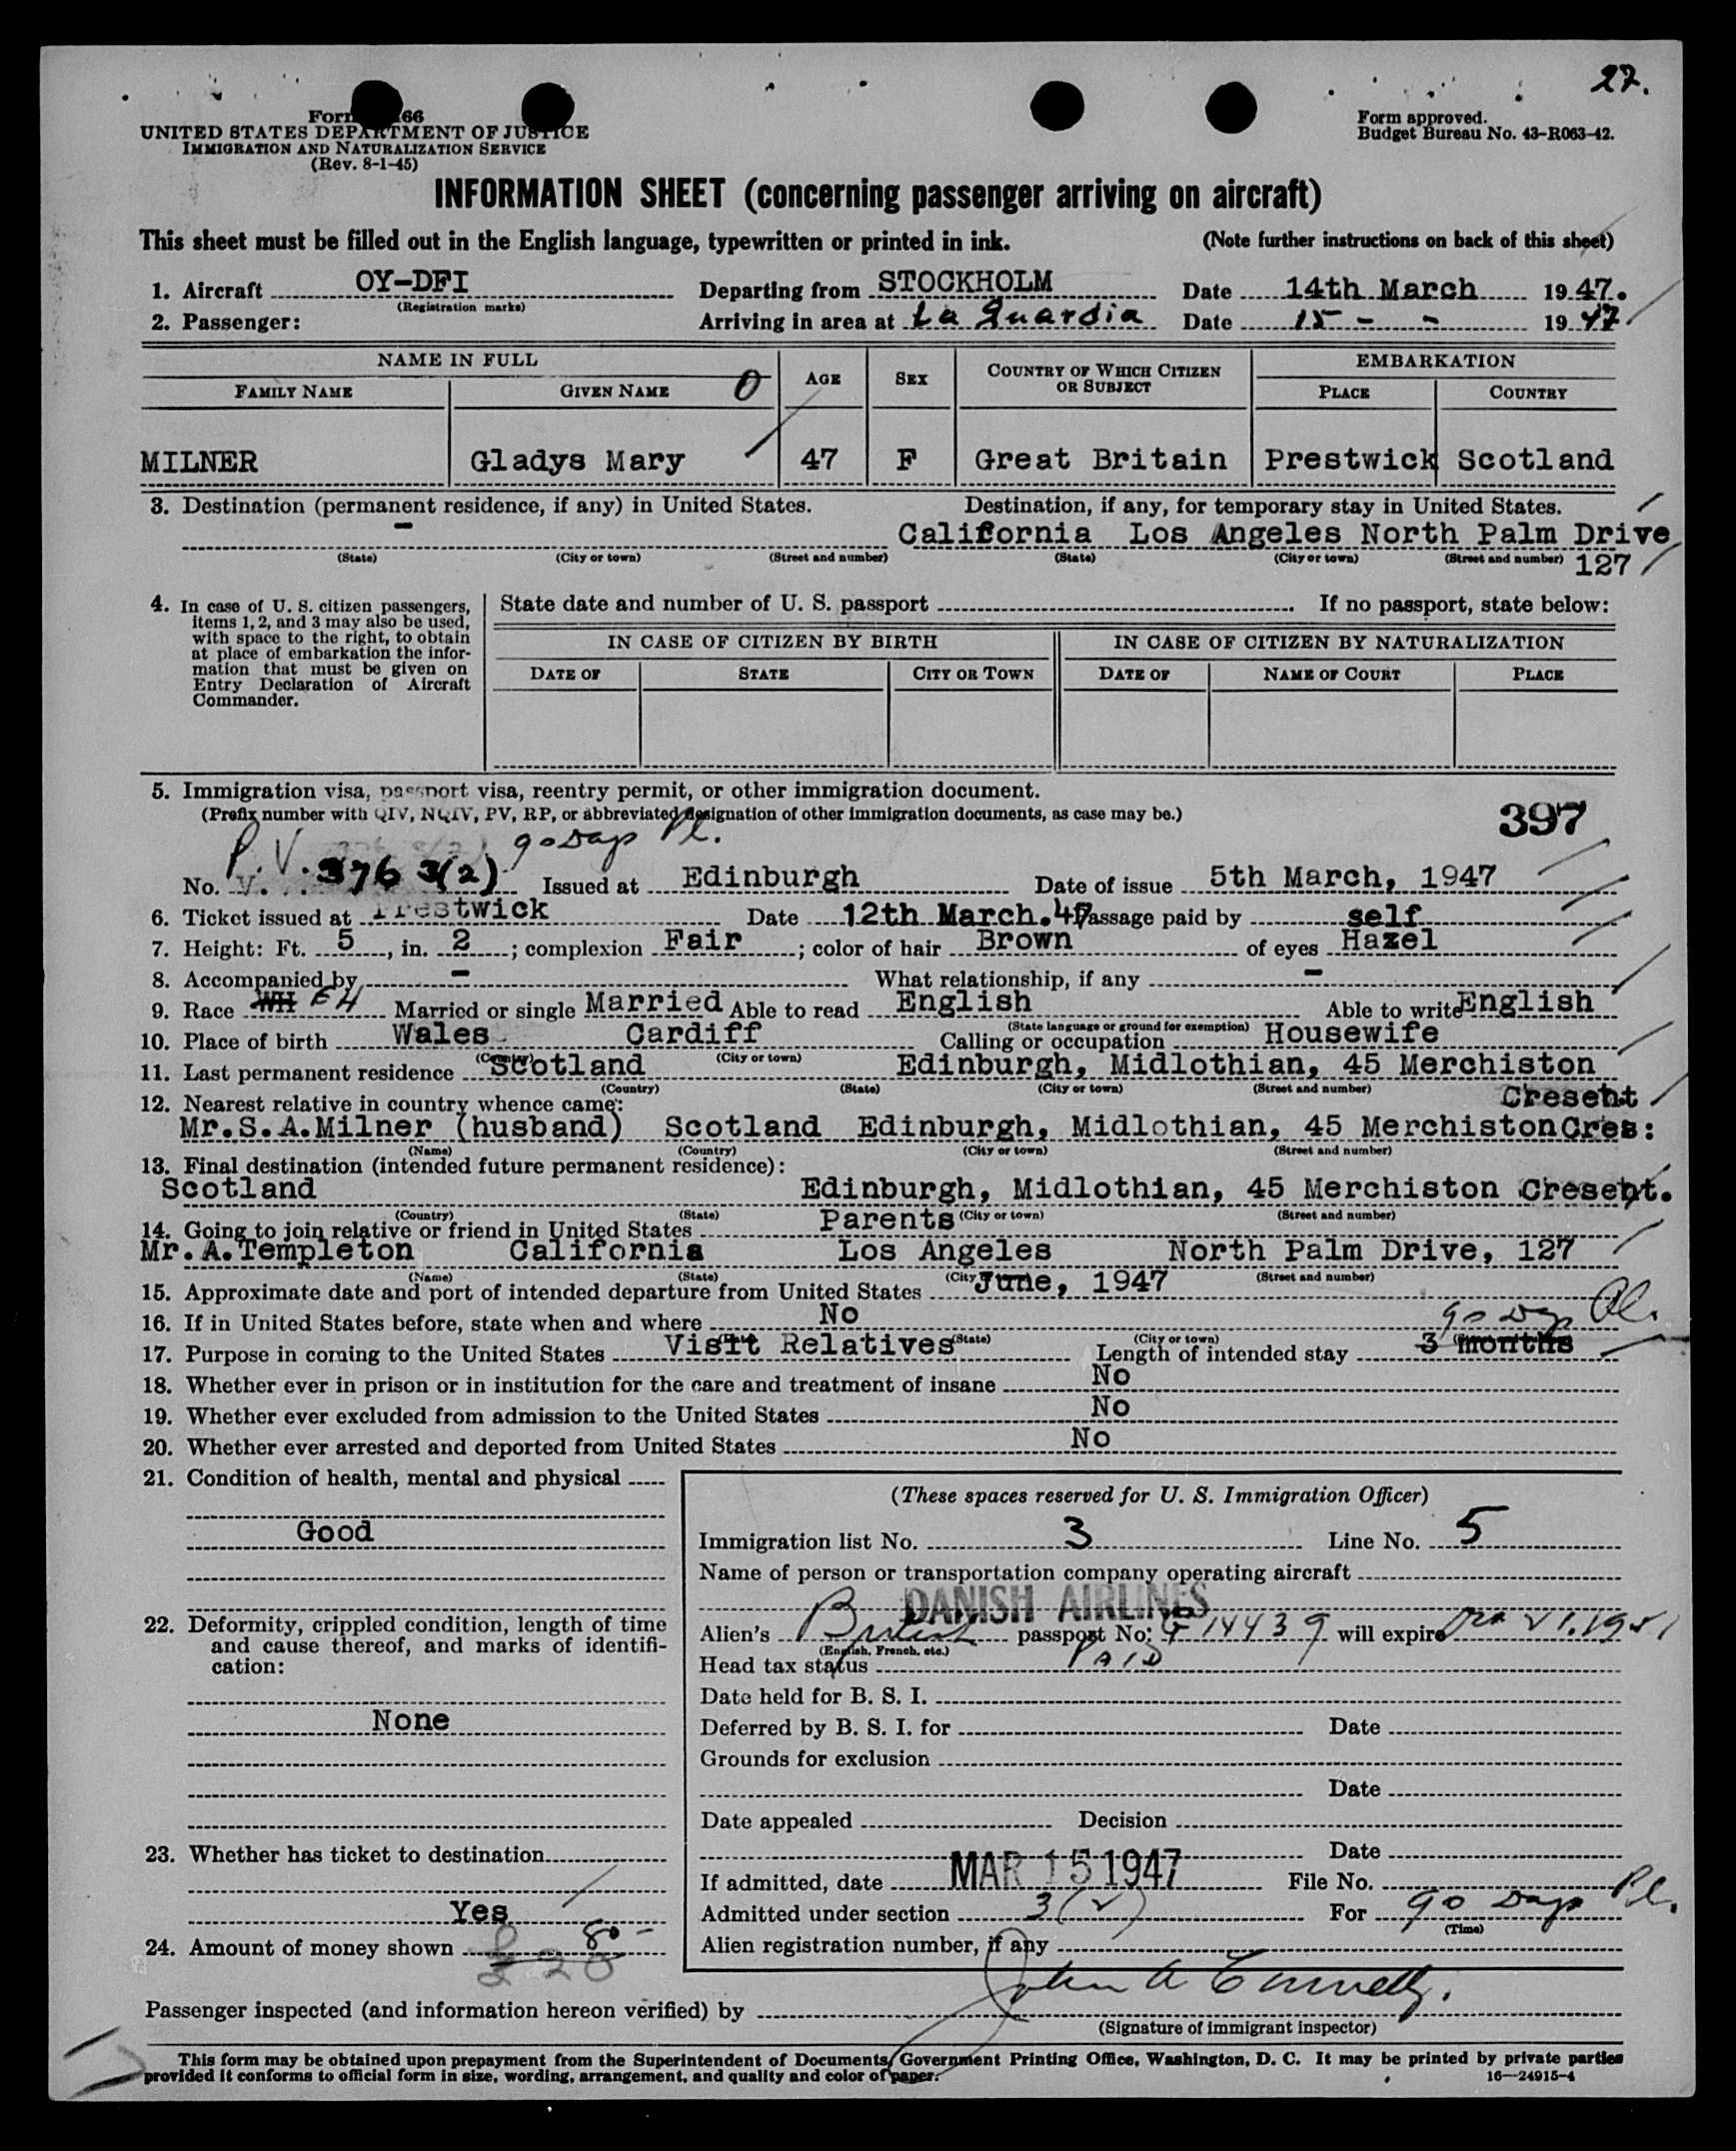 27.
Form 66
UNITED STATES DEPARTMENT OF JUSTICE
IMMIGRATION AND NATURALIZATION SERVICE
(Rev. 8-1-45)
Form approved.
Budget Bureau No. 43-R063-42.
INFORMATION SHEET (concerning passenger arriving on aircraft)
This sheet must be filled out in the English language, typewritten or printed in ink. (Note further instructions on back of this sheet)
1. Aircraft OY-DFI Departing from STOCKHOLM Date 14th March 1947.
(Registration marks)
2. Passenger: Arriving in area at La Guardia Date 15 - - 1947
NAME IN FULL AGE SEX COUNTRY OF WHICH CITIZEN OR SUBJECT EMBARKATION
FAMILY NAME GIVEN NAME 0 PLACE COUNTRY
MILNER Gladys Mary 47 F Great Britain Prestwick Scotland
3. Destination (permanent residence, if any) in United States. Destination, if any, for temporary stay in United States.
- California Los Angeles North Palm Drive
(State) (City or town) (Street and number) (State) (City or town) (Street and number) 127
4. In case of U. S. citizen passengers, items 1, 2, and 3 may also be used, with space to the right, to obtain at place of embarkation the information that must be given on Entry Declaration of Aircraft Commander.
State date and number of U. S. passport . If no passport, state below:
IN CASE OF CITIZEN BY BIRTH IN CASE OF CITIZEN BY NATURALIZATION
DATE OF STATE CITY OR TOWN DATE OF NAME OF COURT PLACE
5. Immigration visa, passport visa, reentry permit, or other immigration document.
(Prefix number with QIV, NQIV, PV, RP, or abbreviated designation of other immigration documents, as case may be.)
397
P.V. 90 Days Pl.
No. V. 376 3(2) Issued at Edinburgh Date of issue 5th March, 1947
6. Ticket issued at Prestwick Date 12th March.47 Passage paid by self
7. Height: Ft. 5, in. 2; complexion Fair; color of hair Brown of eyes Hazel
8. Accompanied by - What relationship, if any -
9. Race WH EH Married or single Married Able to read English Able to write English
(State language or ground for exemption)
10. Place of birth Wales Cardiff Calling or occupation Housewife
(Country) (City or town)
11. Last permanent residence Scotland Edinburgh, Midlothian, 45 Merchiston
(Country) (State) (City or town) (Street and number) Cresent
12. Nearest relative in country whence came:
Mr.S.A.Milner (husband) Scotland Edinburgh, Midlothian, 45 Merchiston Cres:
(Name) (Country) (City or town) (Street and number)
13. Final destination (intended future permanent residence):
Scotland Edinburgh, Midlothian, 45 Merchiston Cresent.
(Country) (State) (City or town) (Street and number)
14. Going to join relative or friend in United States Parents
Mr.A.Templeton California Los Angeles North Palm Drive, 127
(Name) (State) (City (Street and number)
15. Approximate date and port of intended departure from United States June, 1947
16. If in United States before, state when and where No 90 Days Pl.
(State) (City or town)
17. Purpose in coming to the United States Visit Relatives Length of intended stay 3 months
18. Whether ever in prison or in institution for the care and treatment of insane No
19. Whether ever excluded from admission to the United States No
20. Whether ever arrested and deported from United States No
21. Condition of health, mental and physical
Good
22. Deformity, crippled condition, length of time and cause thereof, and marks of identification:
None
23. Whether has ticket to destination
Yes
24. Amount of money shown 80-
£ 20
(These spaces reserved for U. S. Immigration Officer)
Immigration list No. 3 Line No. 5
Name of person or transportation company operating aircraft
DANISH AIRLINES
Alien's British passport No. 14439 will expire 21.1951
(English, French, etc.)
Head tax status PAID
Date held for B. S. I.
Deferred by B. S. I. for Date
Grounds for exclusion
Date
Date appealed Decision
Date
If admitted, date MAR 15 1947 File No.
Admitted under section 3(2) For 90 Days Pl.
(Time)
Alien registration number, if any
Passenger inspected (and information hereon verified) by John A
(Signature of immigrant inspector)
This form may be obtained upon prepayment from the Superintendent of Documents, Government Printing Office, Washington, D. C. It may be printed by private parties
provided it conforms to official form in size, wording, arrangement, and quality and color of paper. 16—24915-4